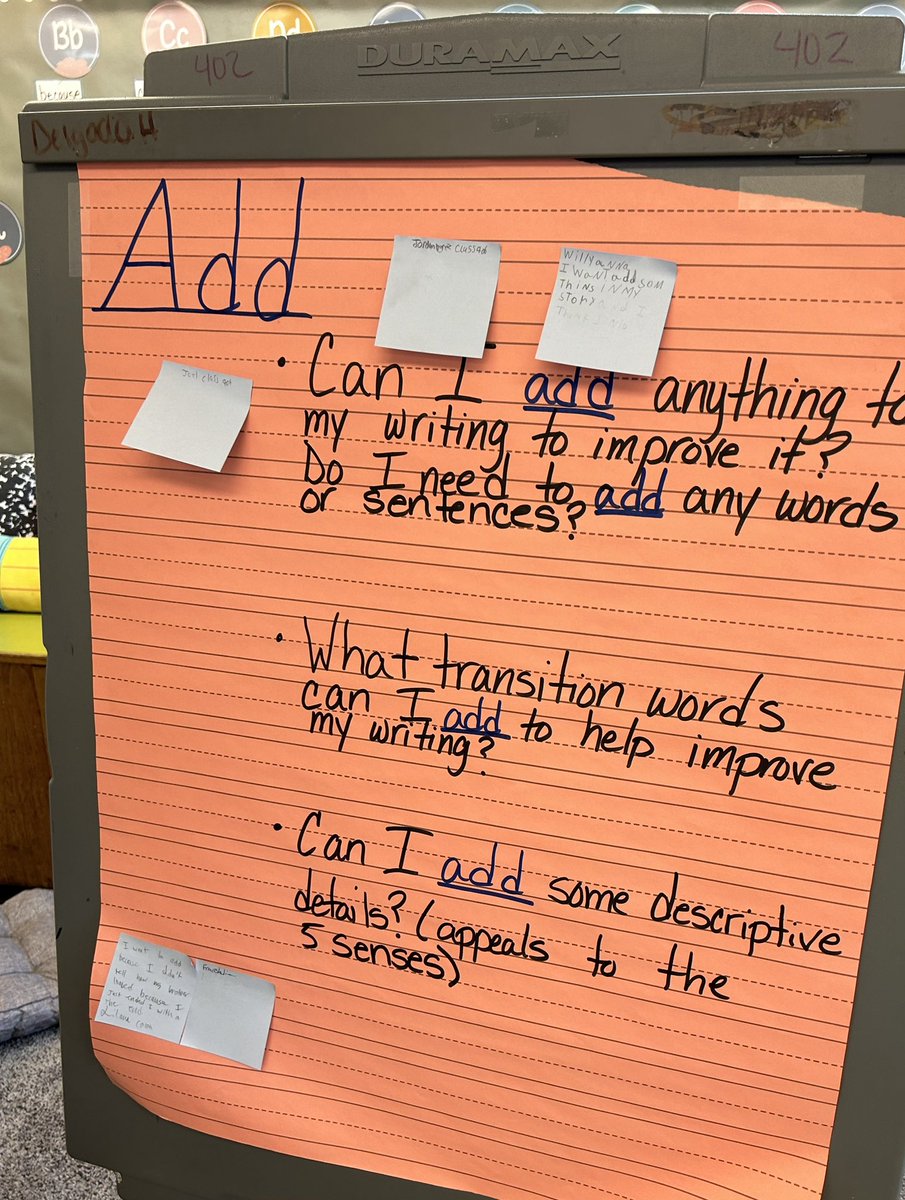 Bb
Cc
Dd
because
402
DURAMAX
402
Add
WillyaNNa
I WaNt add som
Thins IN MY
story
• Can I add anything to
my writing to improve it?
Do I need to add any words
or sentences?
• What transition words
can I add to help improve
my writing?
• Can I add some descriptive
details? (appeals to the
5 senses)
I want to add
because I didn't
tell how my brother
because I
just ended I with a